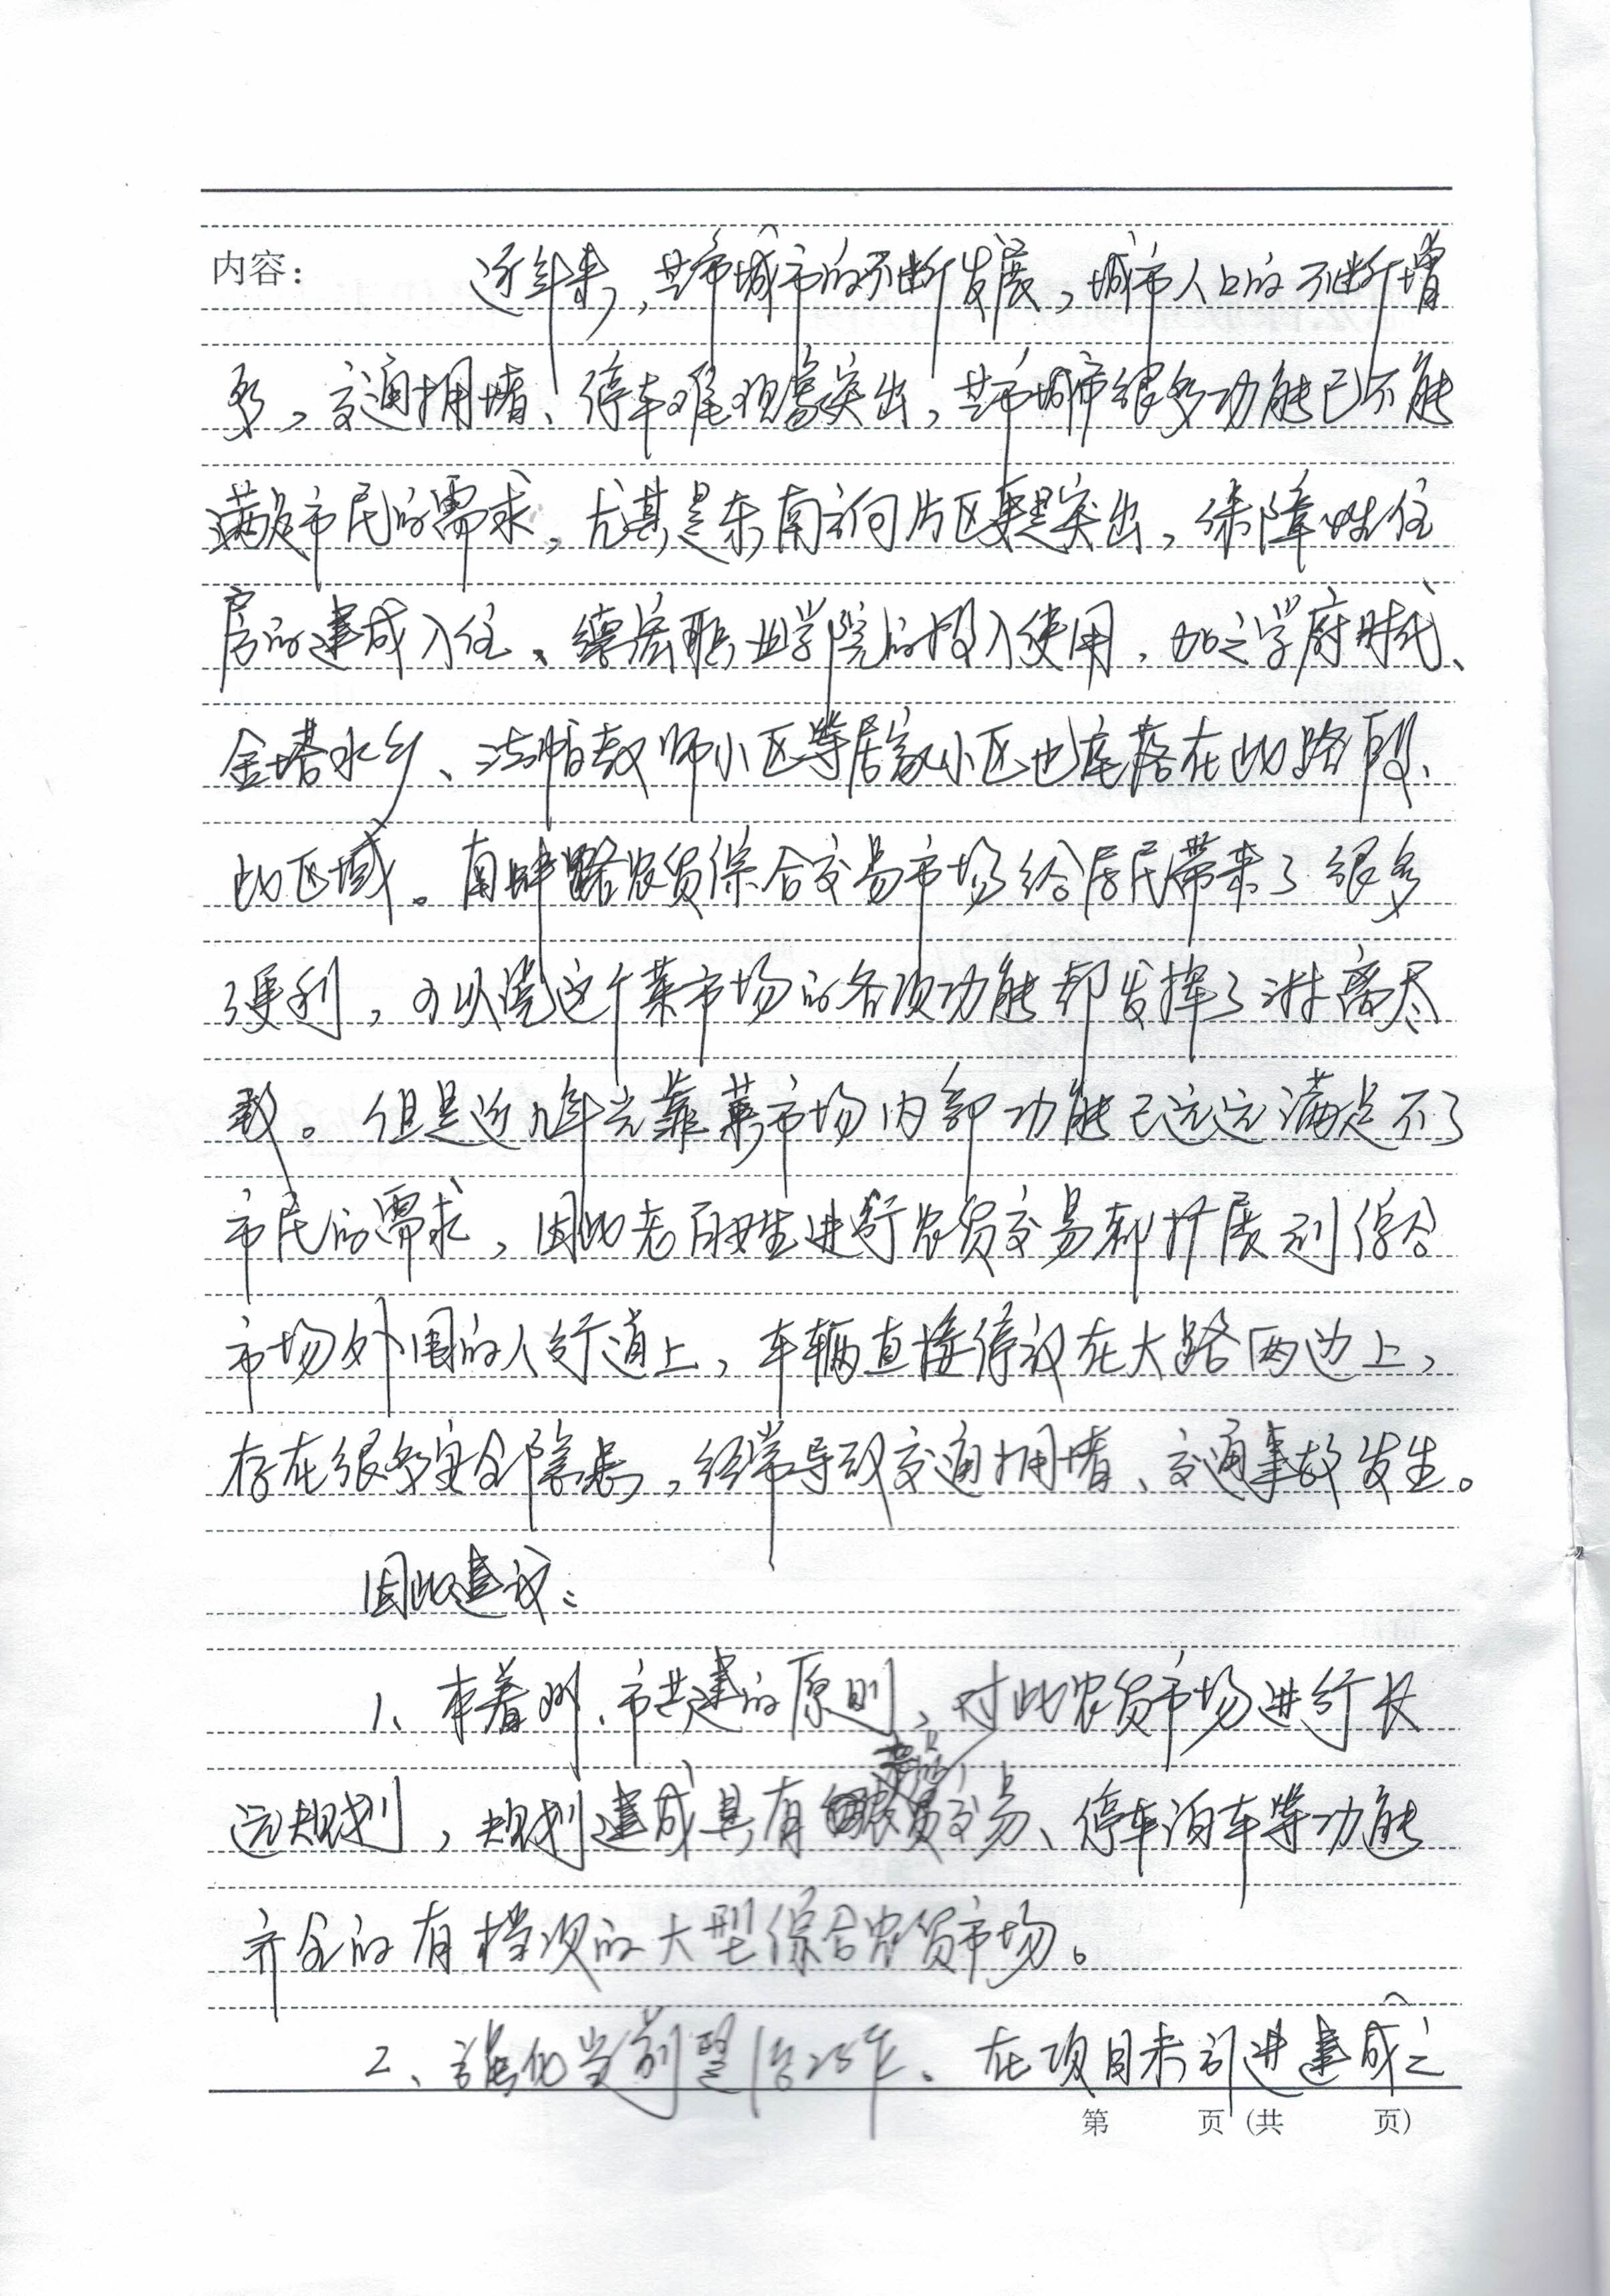 内容: 近年来,芒市城市的不断发展,城市人口的不断增
多,交通拥堵、停车难现象突出,芒市城市很多功能已不能
满足市民的需求,尤其是东南方向片区更是突出,保障性住
房的建成入住、德宏职业学院的投入使用,加之学府时代、
金塔水乡、法帕教师小区等居家小区也座落在此路段、
此区域。南蚌路农贸综合交易市场给居民带来了很多
便利,可以说这个菜市场的各项功能都发挥了淋漓尽
致。但是近几年光靠菜市场内部功能已远远满足不了
市民的需求,因此老百姓进行农贸交易都扩展到综合
市场外围的人行道上,车辆直接停放在大路两边上,
存在很多安全隐患,经常导致交通拥堵、交通事故发生。
因此建议:
1、本着州、市共建的原则,对此农贸市场进行长
远规划,规划建成具有农贸交易、停车泊车等功能
齐全的有档次的大型综合农贸市场。
2、强化当前整治工作。在项目未引进建成之
第 页 (共 页)